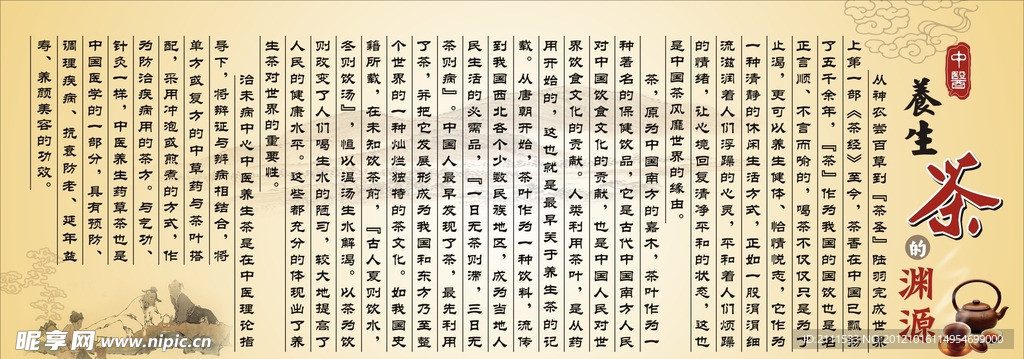 中醫
養生
茶
的
渊源
从神农尝百草到『茶圣』陆羽完成世界
上第一部《茶经》至今，茶香在中国已飘扬
了五千余年，『茶』作为我国的国饮也是名
正言顺、不言而喻的，喝茶不仅仅只是为了
止渴，更可以养生健体、怡情悦志，它作为
一种清静的休闲生活方式，正如一股涓涓细
流滋润着人们浮躁的心灵，平和着人们烦躁
的情绪，让心境回复清净平和的状态，这也
是中国茶风靡世界的缘由。
茶，原为中国南方的嘉木，茶叶作为一
种著名的保健饮品，它是古代中国南方人民
对中国饮食文化的贡献，也是中国人民对世
界饮食文化的贡献。人类利用茶叶，是从药
用开始的，这也就是最早关于养生茶的记
载。从唐朝开始，茶叶作为一种饮料，流传
到我国西北各个少数民族地区，成为当地人
民生活的必需品，『一日无茶则滞，三日无
茶则病』。中国人最早发现了茶，最先利用
了茶，并把它发展形成为我国和东方乃至整
个世界的一种灿烂独特的茶文化。如我国史
籍所载，在未知饮茶前，『古人夏则饮水，
冬则饮汤』，恒以温汤生水解渴。以茶为饮
则改变了人们喝生水的陋习，较大地提高了
人民的健康水平。这些都充分的体现出了养
生茶对世界的重要性。
治未病中心中医养生茶是在中医理论指
导下，将辩证与辨病相结合，将
单方或复方的中草药与茶叶搭
配，采用冲泡或煎煮的方式，作
为防治疾病用的茶方。与气功、
针灸一样，中医养生药草茶也是
中国医学的一部分，具有预防、
调理疾病、抗衰防老、延年益
寿、养颜美容的功效。
昵享网 www.nipic.cn
ID:2131533 NO:20121016114954699000